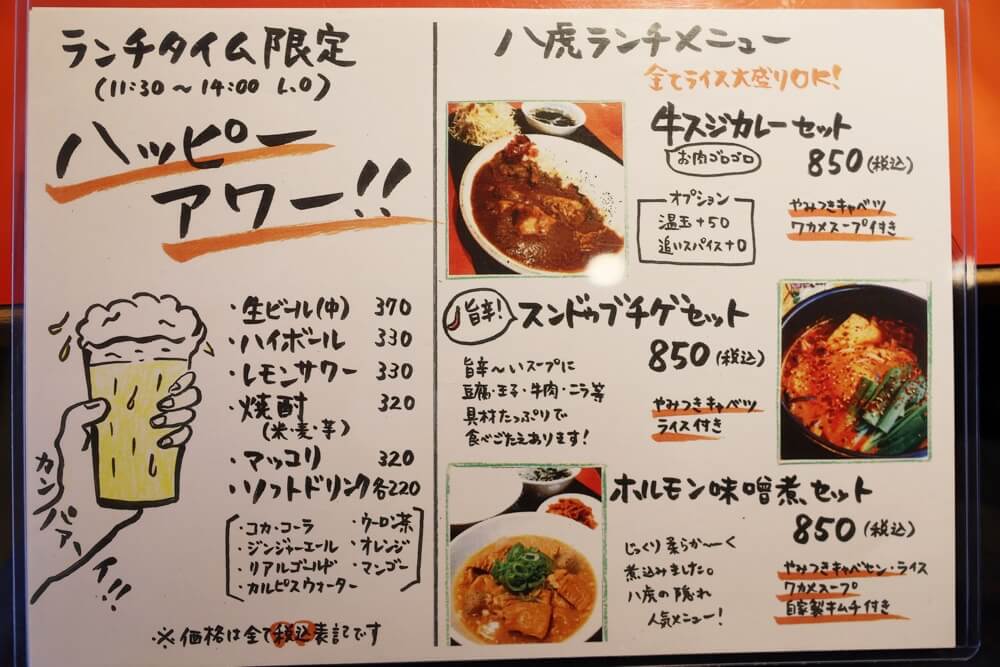 ランチタイム限定
(11:30～14:00 L.O)
ハッピー
アワー!!
・生ビール(中) 370
・ハイボール 330
・レモンサワー 330
・焼酎 320
(米・麦・芋)
・マッコリ 320
・ソフトドリンク各220
・コカ・コーラ ・ウーロン茶
・ジンジャーエール ・オレンジ
・リアルゴールド ・マンゴー
・カルピスウォーター
カンパァーイ!!
・※価格は全て税込表記です
八虎ランチメニュー
全てライス大盛りOK!
牛スジカレーセット
お肉ゴロゴロ
850(税込)
オプション
温玉+50
追いスパイス+0
やみつきキャベツ
ワカメスープ付き
旨辛!
スンドゥブチゲセット
850(税込)
旨辛～いスープに
豆腐・玉子・牛肉・ニラ等
具材たっぷりで
食べごたえあります!
やみつきキャベツ
ライス付き
ホルモン味噌煮セット
850(税込)
じっくり柔らか～く
煮込みました。
八虎の隠れ
人気メニュー!
やみつきキャベセン・ライス
ワカメスープ
自家製キムチ付き